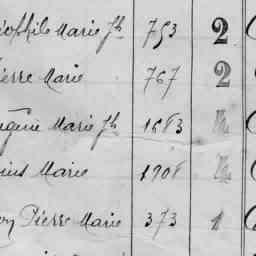 éophile Marie Jh 753 2
ierre Marie 767 2
ugénie Marie Jh 1683
ius Marie 1908
on Pierre Marie 373 1